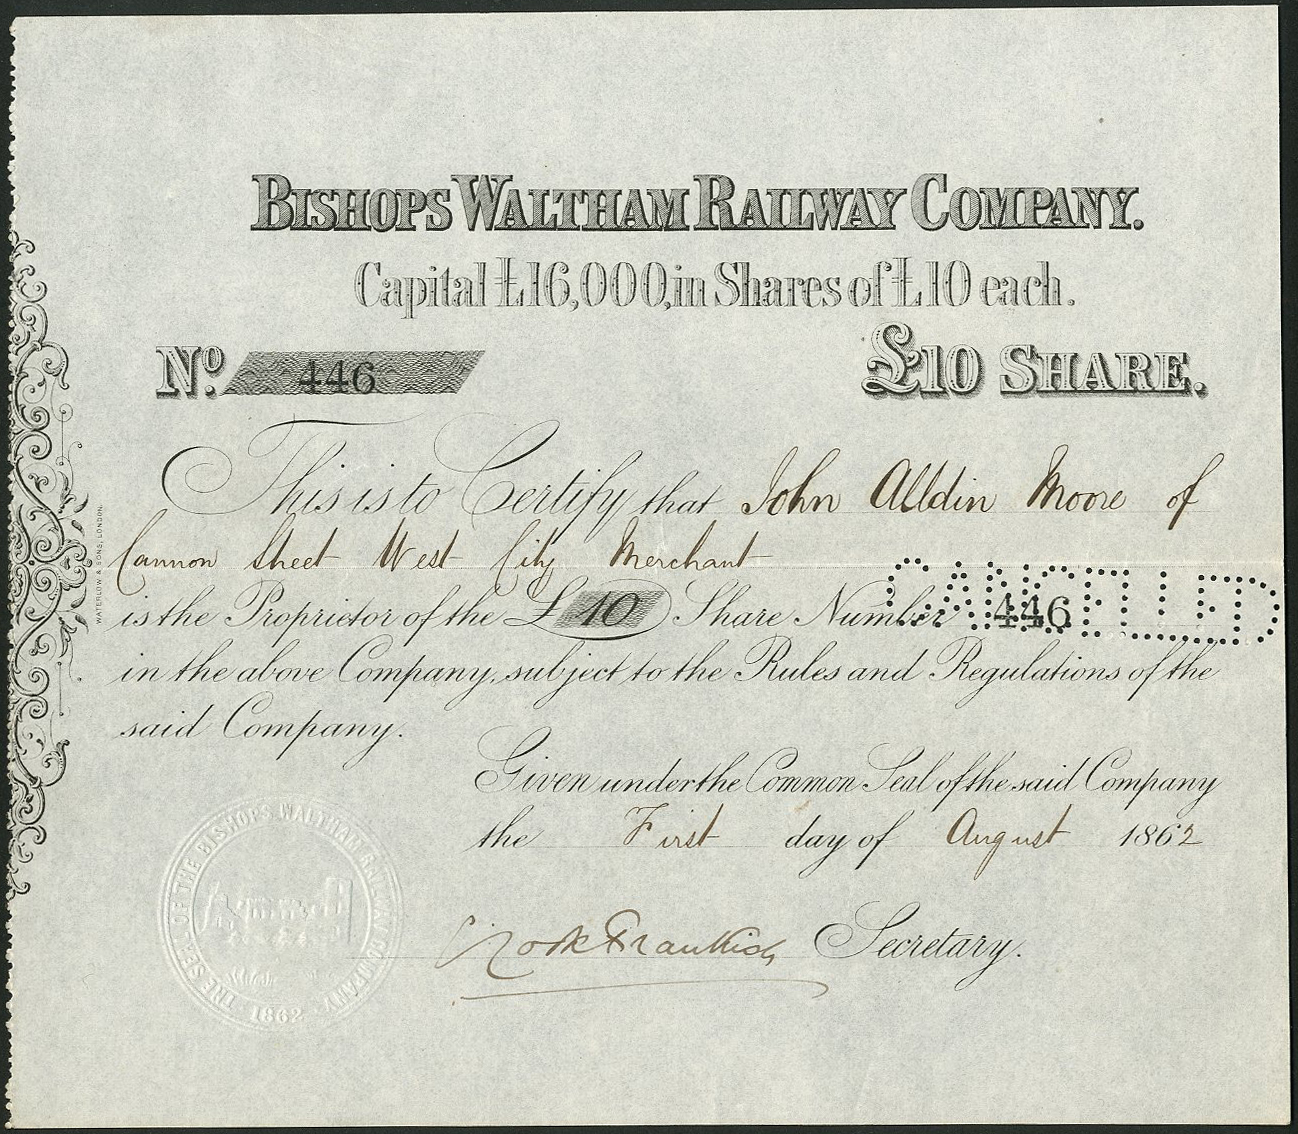 BISHOPS WALTHAM RAILWAY COMPANY.
Capital £16,000, in Shares of £10 each.
No. 446 £10 SHARE.
This is to Certify that John Alldin Moore of
Cannon Street West City Merchant
CANCELLED
is the Proprietor of the £10 Share Number 446
in the above Company, subject to the Rules and Regulations of the
said Company.
Given under the Common Seal of the said Company
the First day of August 1862
Secretary.
THE SEAL OF THE BISHOPS WALTHAM RAILWAY COMPANY
1862
WATERLOW & SONS, LONDON.